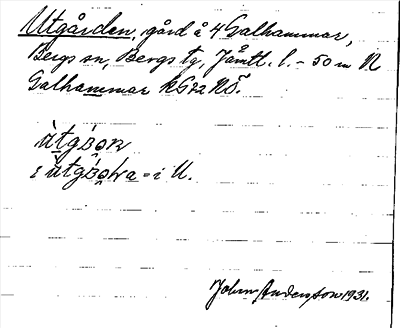 Utgården, gård å 4 Galhammar,
Bergs sn, Bergs tg, Jämtl. l. - 50 m N
Galhammar kG 22 NÖ.
i = i U.
John Andersson 1931.